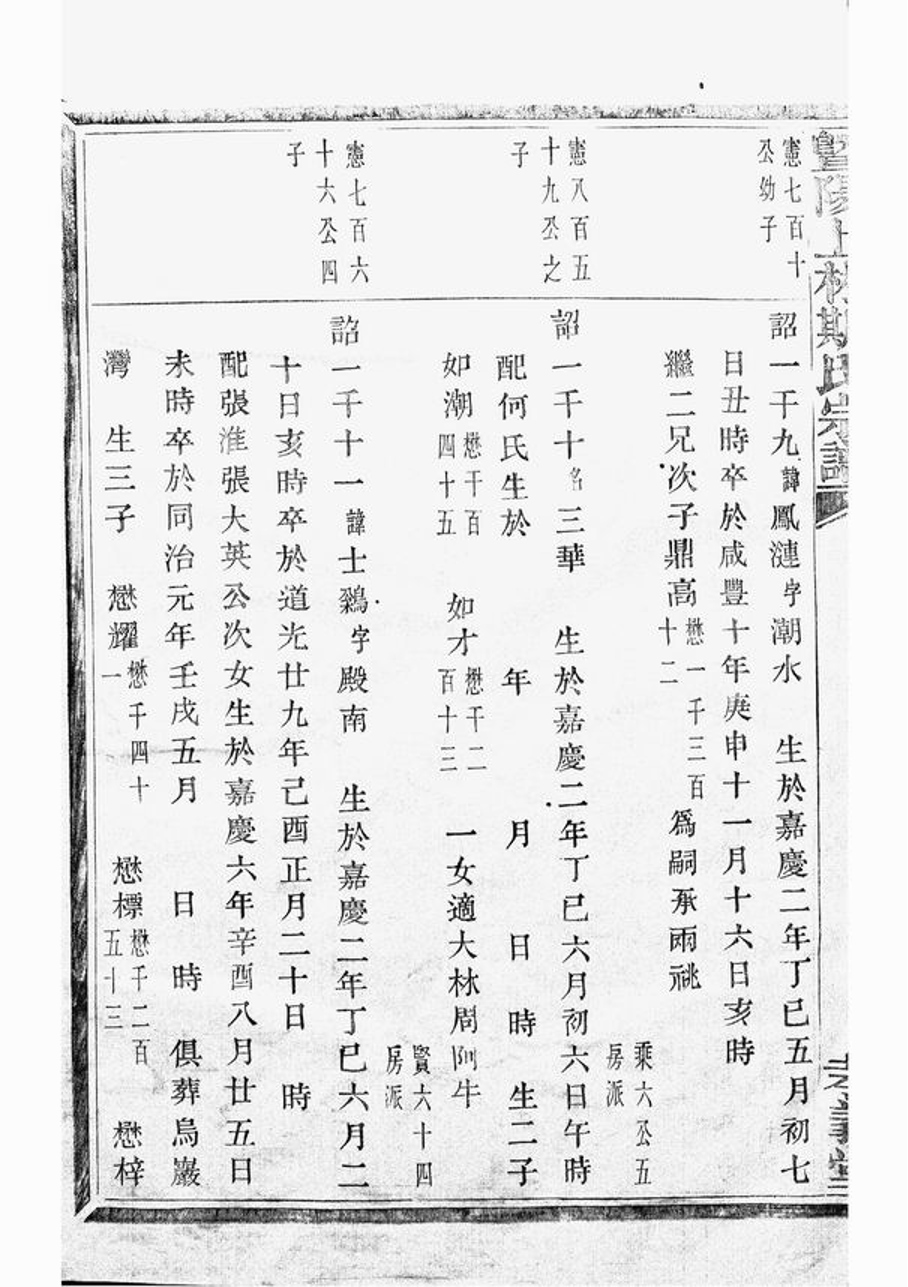 暨陽上林斯氏宗譜
孝義堂
憲七百十
公幼子
詔一千九諱鳳漣字潮水 生於嘉慶二年丁巳五月初七
日丑時卒於咸豐十年庚申十一月十六日亥時
繼二兄次子鼎高懋一千三百十二為嗣承兩祧
乘六公五
房派
憲八百五
十九公之
子
詔一千十名三華 生於嘉慶二年丁巳六月初六日午時
配何氏生於 年 月 日 時 生二子
如潮懋千百四十五 如才懋千二百十三 一女適大林周阿牛
賢六十四
房派
憲七百六
十六公四
子
詔一千十一諱士鵝字殿南 生於嘉慶二年丁巳六月二
十日亥時卒於道光廿九年己酉正月二十日 時
配張淮張大英公次女生於嘉慶六年辛酉八月廿五日
未時卒於同治元年壬戌五月 日 時 俱葬烏巖
灣 生三子 懋耀懋千四十一 懋標懋千二百五十三 懋梓